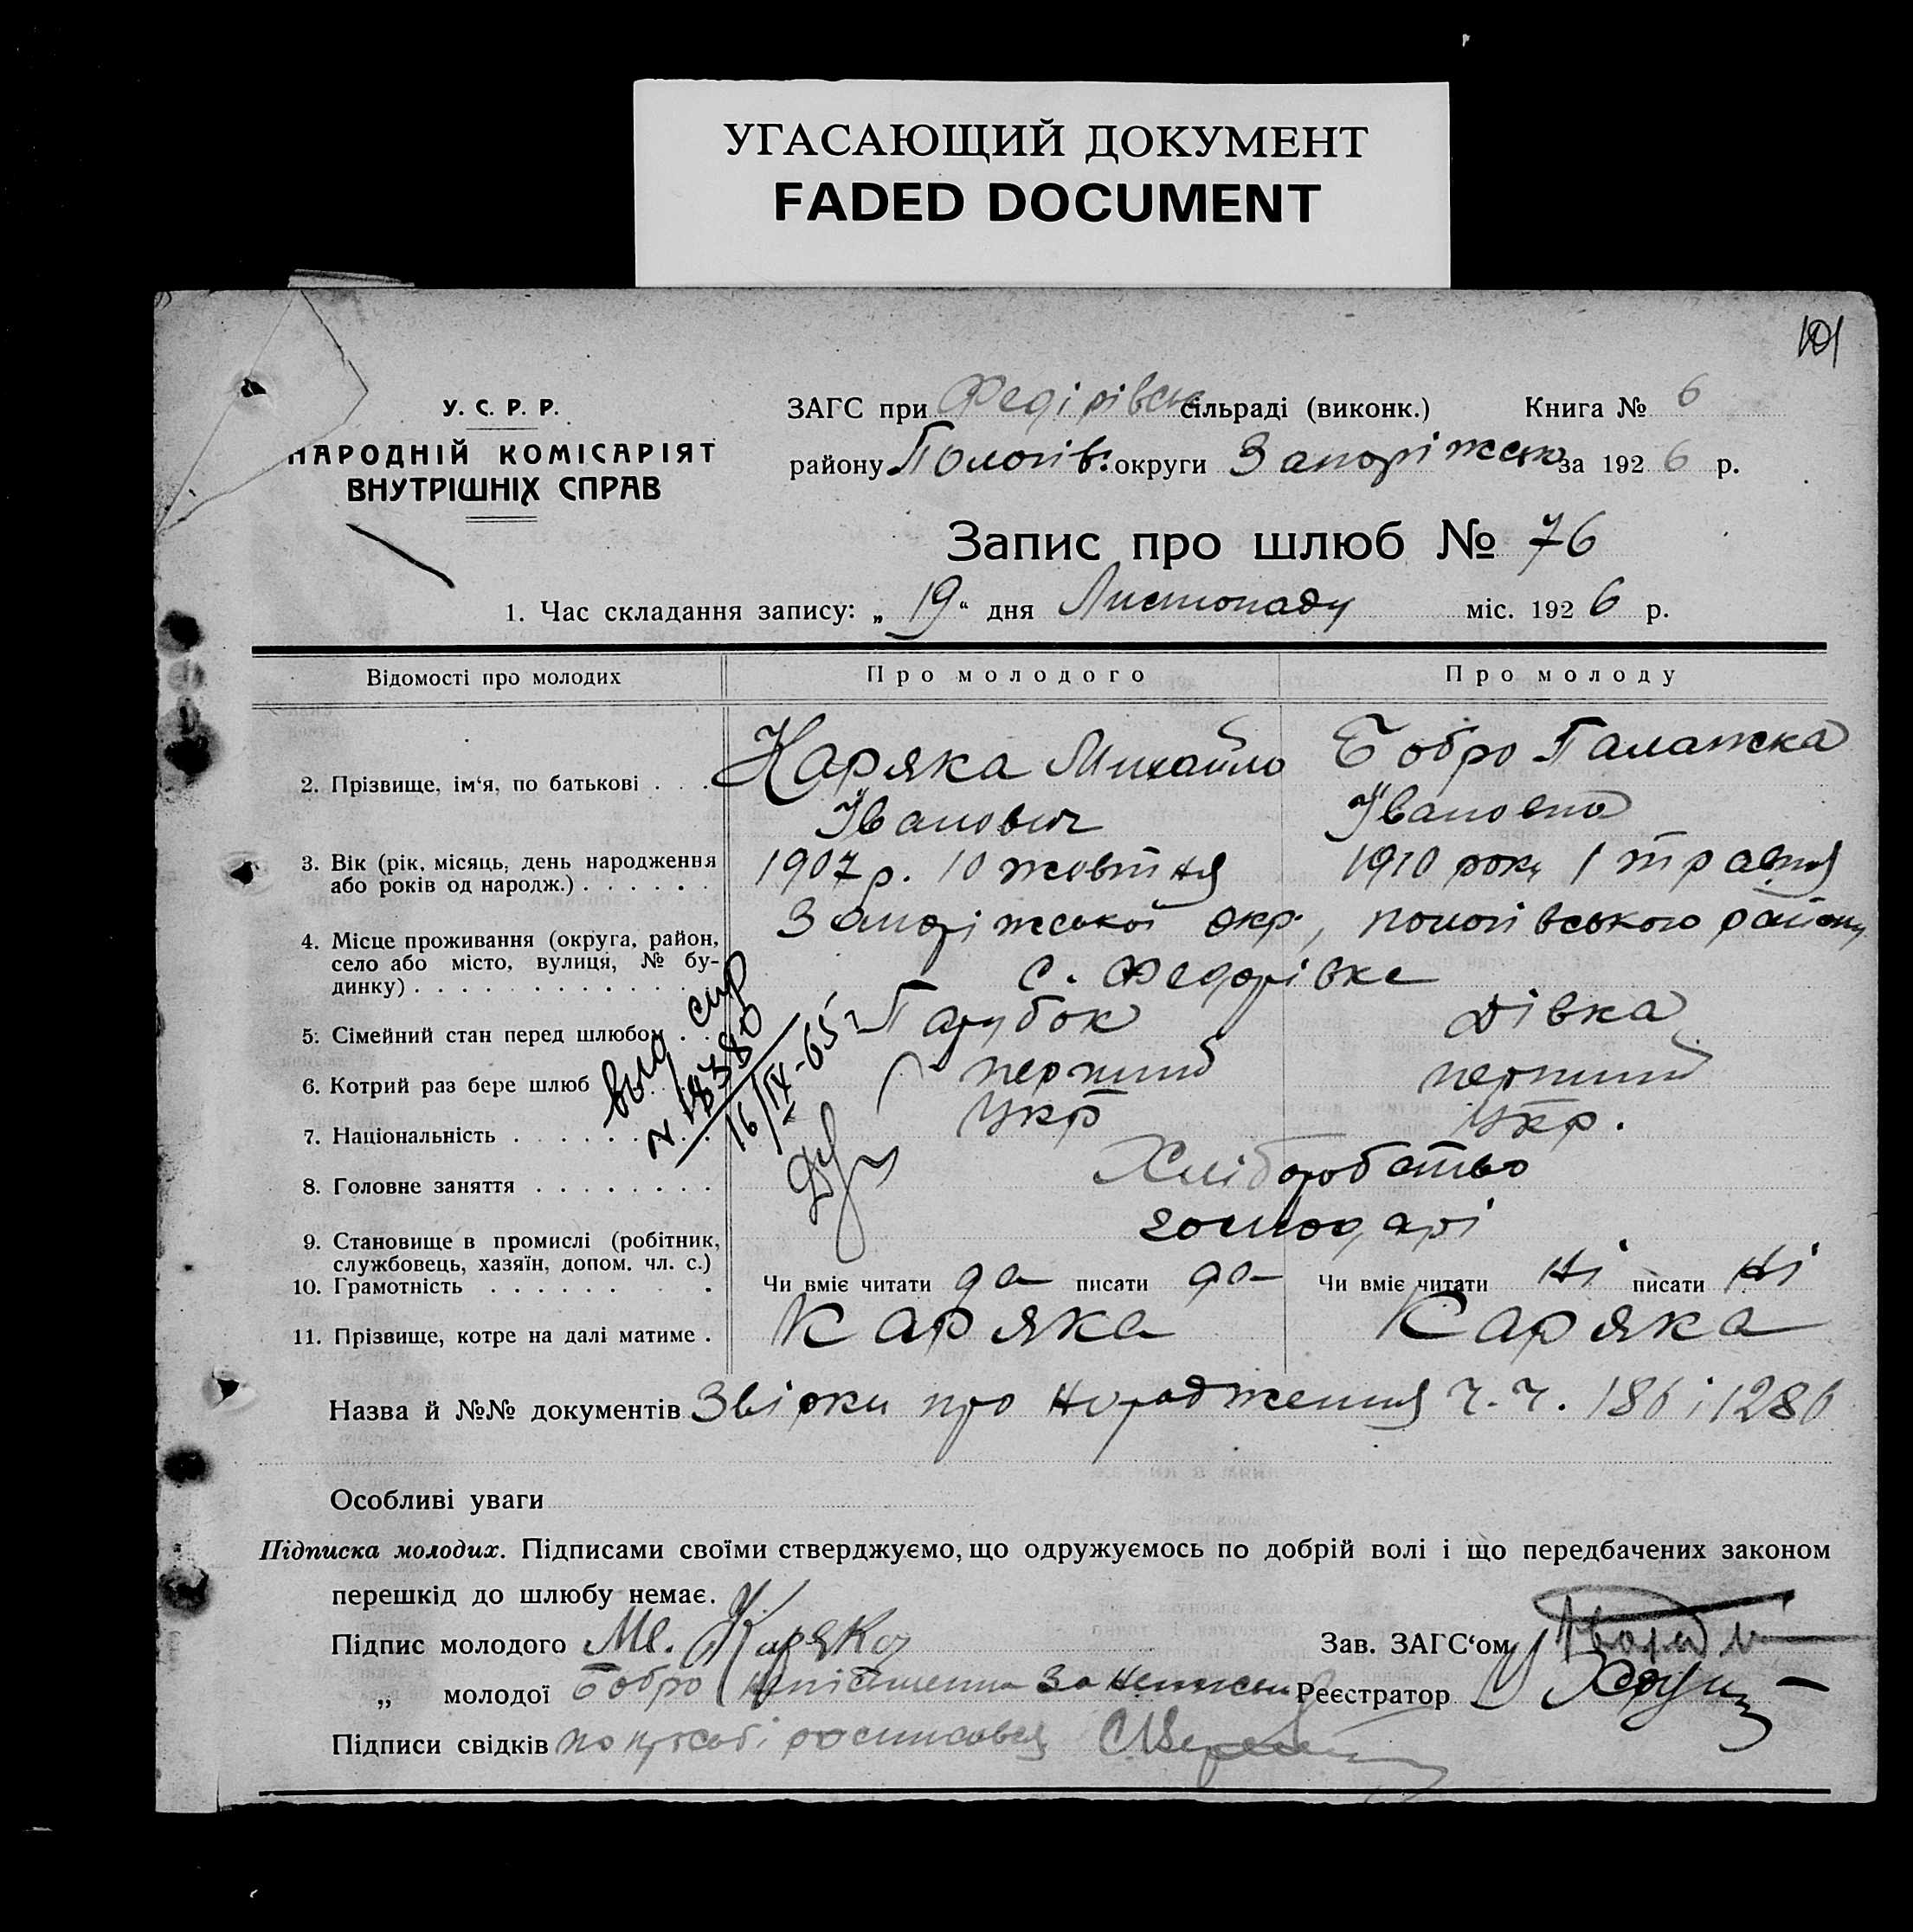 УГАСАЮЩИЙ ДОКУМЕНТ
FADED DOCUMENT
101
У. С. Р. Р.
НАРОДНІЙ КОМІСАРІЯТ
ВНУТРІШНІХ СПРАВ
ЗАГС при Федірівськ сільраді (виконк.) Книга № 6
району Пологів. округи Запоріжськ за 1926 р.
Запис про шлюб № 76
1. Час складання запису: „19“ дня Листопаду міс. 1926 р.
Відомості про молодих Про молодого Про молоду
2. Прізвище, ім‘я, по батькові . . . Каряка Михайло Бобро Палажка
Іванович Івановна
3. Вік (рік, місяць, день народження 1907 р. 10 жовтня 1910 року 1 травня
або років од народж.) . . . . . .
4. Місце проживання (округа, район, Запоріжської окр, пологівського району
село або місто, вулиця, № бу-
динку) . . . . . . . . . . . . . с. Федорівка
5. Сімейний стан перед шлюбом . . Парубок Дівка
6. Котрий раз бере шлюб перший перший
7. Національність . . . . . . . . Укр Укр.
8. Головне заняття . . . . . . . . Хліборобство
9. Становище в промислі (робітник, господарі
службовець, хазяїн, допом. чл. с.)
10. Грамотність . . . . . . . Чи вміє читати да писати да Чи вміє читати ні писати ні
11. Прізвище, котре на далі матиме . Каряка Каряка
вид. спр
N. 18380
16/IX-65
Назва й №№ документів Звірки про народження ч.ч. 186 і 1286
Особливі уваги
Підписка молодих. Підписами своїми стверджуємо, що одружуємось по добрій волі і що передбачених законом
перешкід до шлюбу немає.
Підпис молодого Мі. Каряка Зав. ЗАГС‘ом
„ молодої Бобро за Реєстратор
Підписи свідків росписався